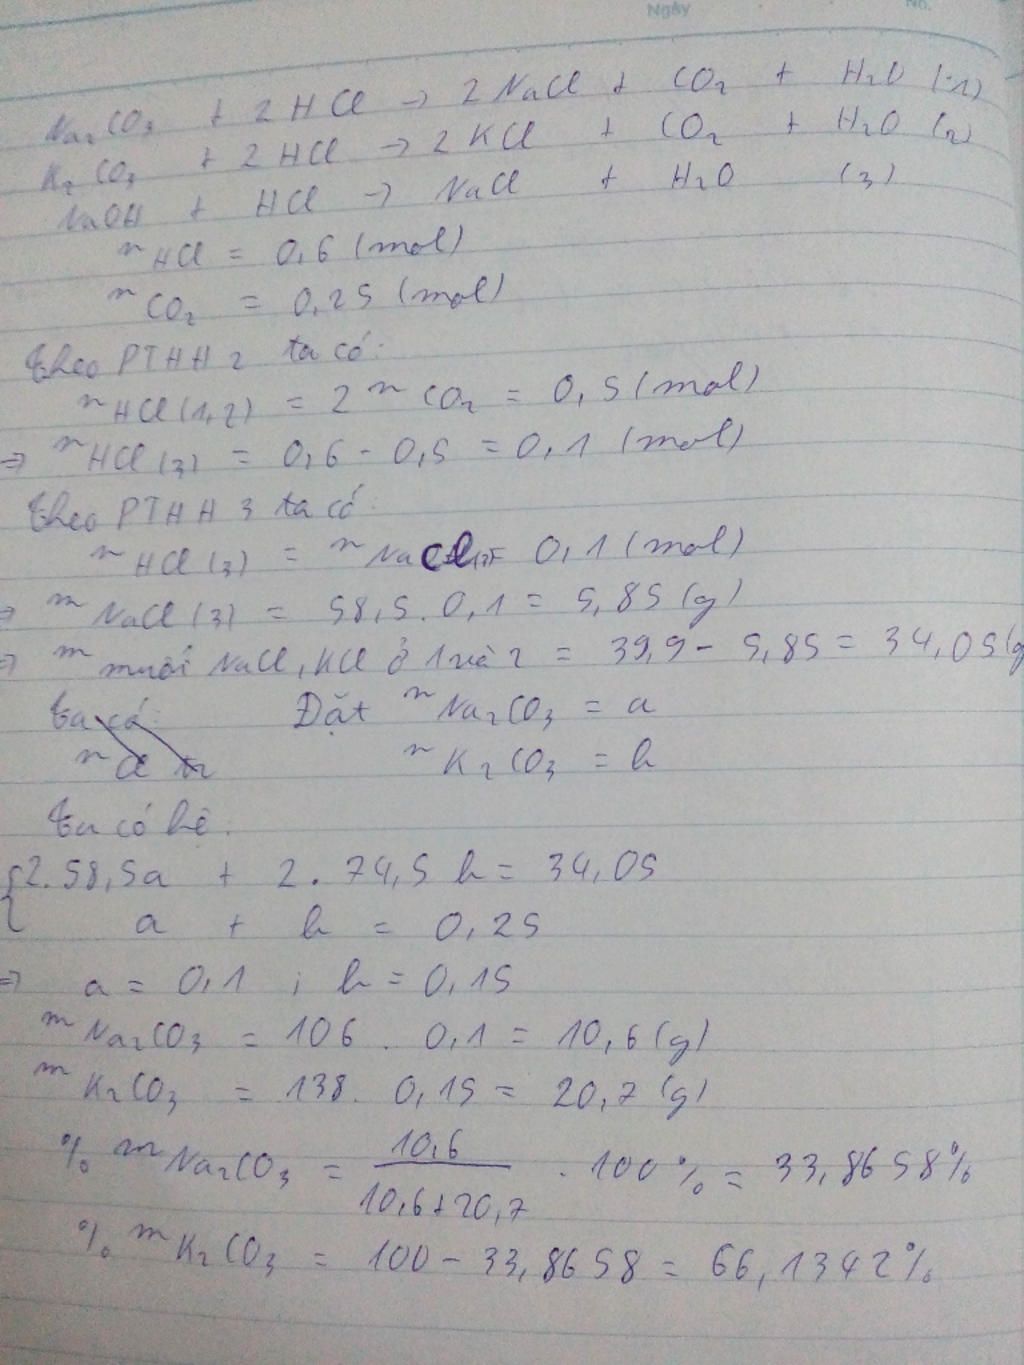 Ngày No.
Na₂CO₃ + 2HCl → 2NaCl + CO₂ + H₂O (1)
K₂CO₃ + 2HCl → 2KCl + CO₂ + H₂O (2)
NaOH + HCl → NaCl + H₂O (3)
n HCl = 0,6 (mol)
n CO₂ = 0,25 (mol)
theo PTHH 2 ta có:
n HCl (1,2) = 2 n CO₂ = 0,5 (mol)
=> n HCl (3) = 0,6 - 0,5 = 0,1 (mol)
theo PTHH 3 ta có
n HCl (3) = n NaCl = 0,1 (mol)
=> m NaCl (3) = 58,5 . 0,1 = 5,85 (g)
=> m muối NaCl, KCl ở 1 và 2 = 39,9 - 5,85 = 34,05 (g
ta có: Đặt n Na₂CO₃ = a
n Cl n K₂CO₃ = b
ta có hệ.
{2.58,5a + 2.74,5 b = 34,05
a + b = 0,25
=> a = 0,1 ; b = 0,15
m Na₂CO₃ = 106 . 0,1 = 10,6 (g)
m K₂CO₃ = 138 . 0,15 = 20,7 (g)
% m Na₂CO₃ = 10,6 / 10,6+20,7 . 100% = 33,8658%
% m K₂CO₃ = 100 - 33,8658 = 66,1342%